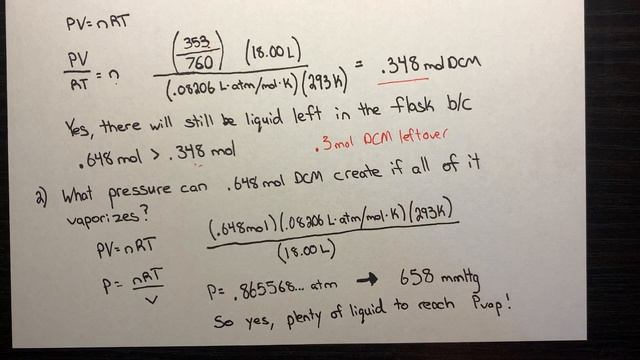 PV=nRT
PV/RT = n (353/760) (18.00 L) / (.08206 L·atm/mol·K)(293K) = .348 mol DCM
Yes, there will still be liquid left in the flask b/c
.648 mol > .348 mol .3 mol DCM leftover
2) What pressure can .648 mol DCM create if all of it
vaporizes?
PV=nRT (.648 mol)(.08206 L·atm/mol·K)(293K) / (18.00 L)
P= nRT/V P= .865568... atm → 658 mmHg
So yes, plenty of liquid to reach Pvap!